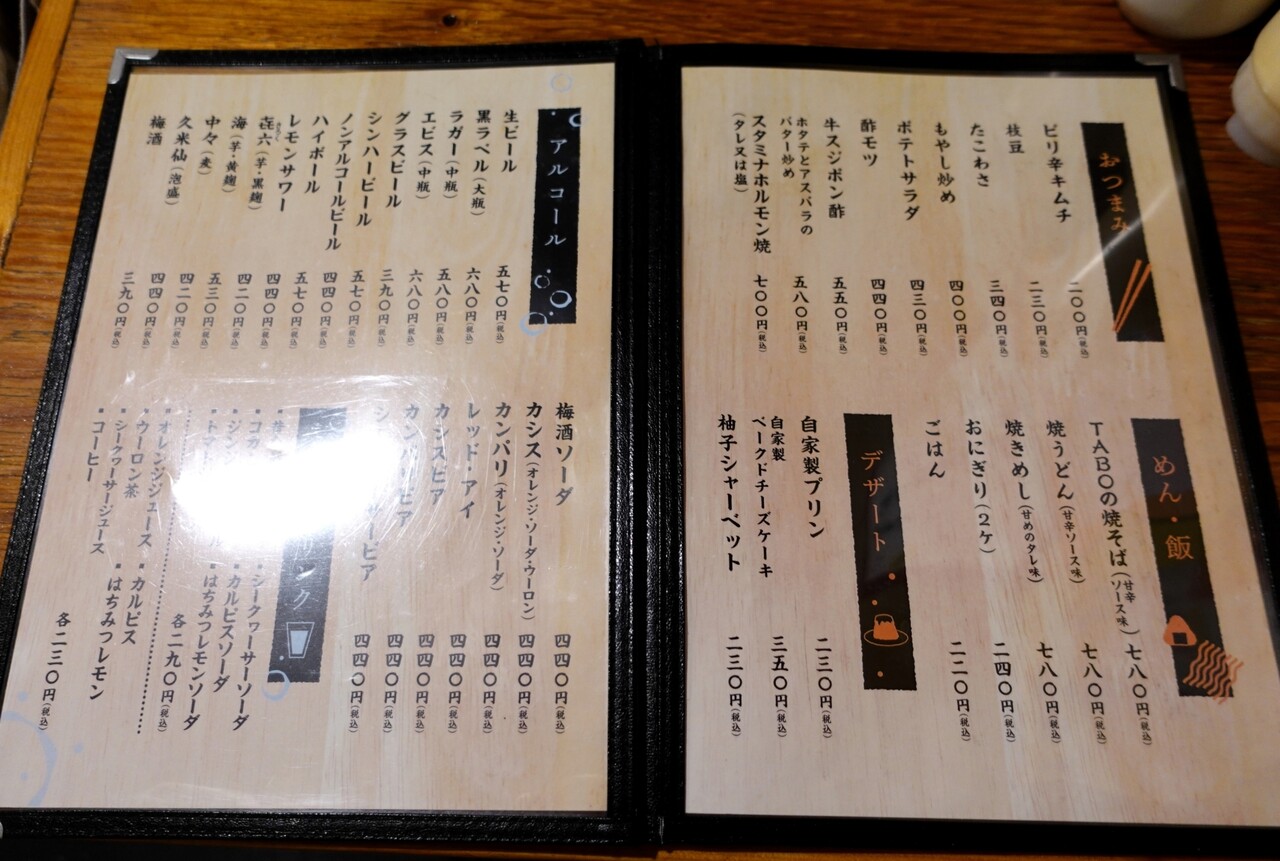 おつまみ
ピリ辛キムチ 二〇〇円(税込)
枝豆 二三〇円(税込)
たこわさ 三四〇円(税込)
もやし炒め 四〇〇円(税込)
ポテトサラダ 四三〇円(税込)
酢モツ 四四〇円(税込)
牛スジポン酢 五五〇円(税込)
ホタテとアスパラの
バター炒め 五八〇円(税込)
スタミナホルモン焼
(タレ又は塩) 七〇〇円(税込)
めん・飯
TABOの焼そば(甘辛ソース味) 七八〇円(税込)
焼うどん(甘辛ソース味) 七八〇円(税込)
焼きめし(甘めのタレ味) 七八〇円(税込)
おにぎり(2ケ) 二四〇円(税込)
ごはん 二二〇円(税込)
デザート
自家製プリン 二三〇円(税込)
自家製
ベークドチーズケーキ 三五〇円(税込)
柚子シャーベット 二三〇円(税込)
アルコール
生ビール 五七〇円(税込)
黒ラベル(大瓶) 六八〇円(税込)
ラガー(中瓶) 五八〇円(税込)
エビス(中瓶) 六八〇円(税込)
グラスビール 三九〇円(税込)
シンハービール 五七〇円(税込)
ノンアルコールビール 四四〇円(税込)
ハイボール 五七〇円(税込)
レモンサワー 四四〇円(税込)
㐂六(芋・黒麹) 四二〇円(税込)
海(芋・黄麹) 五三〇円(税込)
中々(麦) 四二〇円(税込)
久米仙(泡盛) 四四〇円(税込)
梅酒 三九〇円(税込)
梅酒ソーダ 四四〇円(税込)
カシス(オレンジ・ソーダ・ウーロン) 四四〇円(税込)
カンパリ(オレンジ・ソーダ) 四四〇円(税込)
レッド・アイ 四四〇円(税込)
カシスビア 四四〇円(税込)
カンパリビア 四四〇円(税込)
ビア 四四〇円(税込)
リンク
▪シークヮーサーソーダ
▪カルピスソーダ
▪はちみつレモンソーダ
各二九〇円(税込)
▪オレンジジュース
▪ウーロン茶 ▪カルピス
▪シークヮーサージュース ▪はちみつレモン
▪コーヒー
各二三〇円(税込)